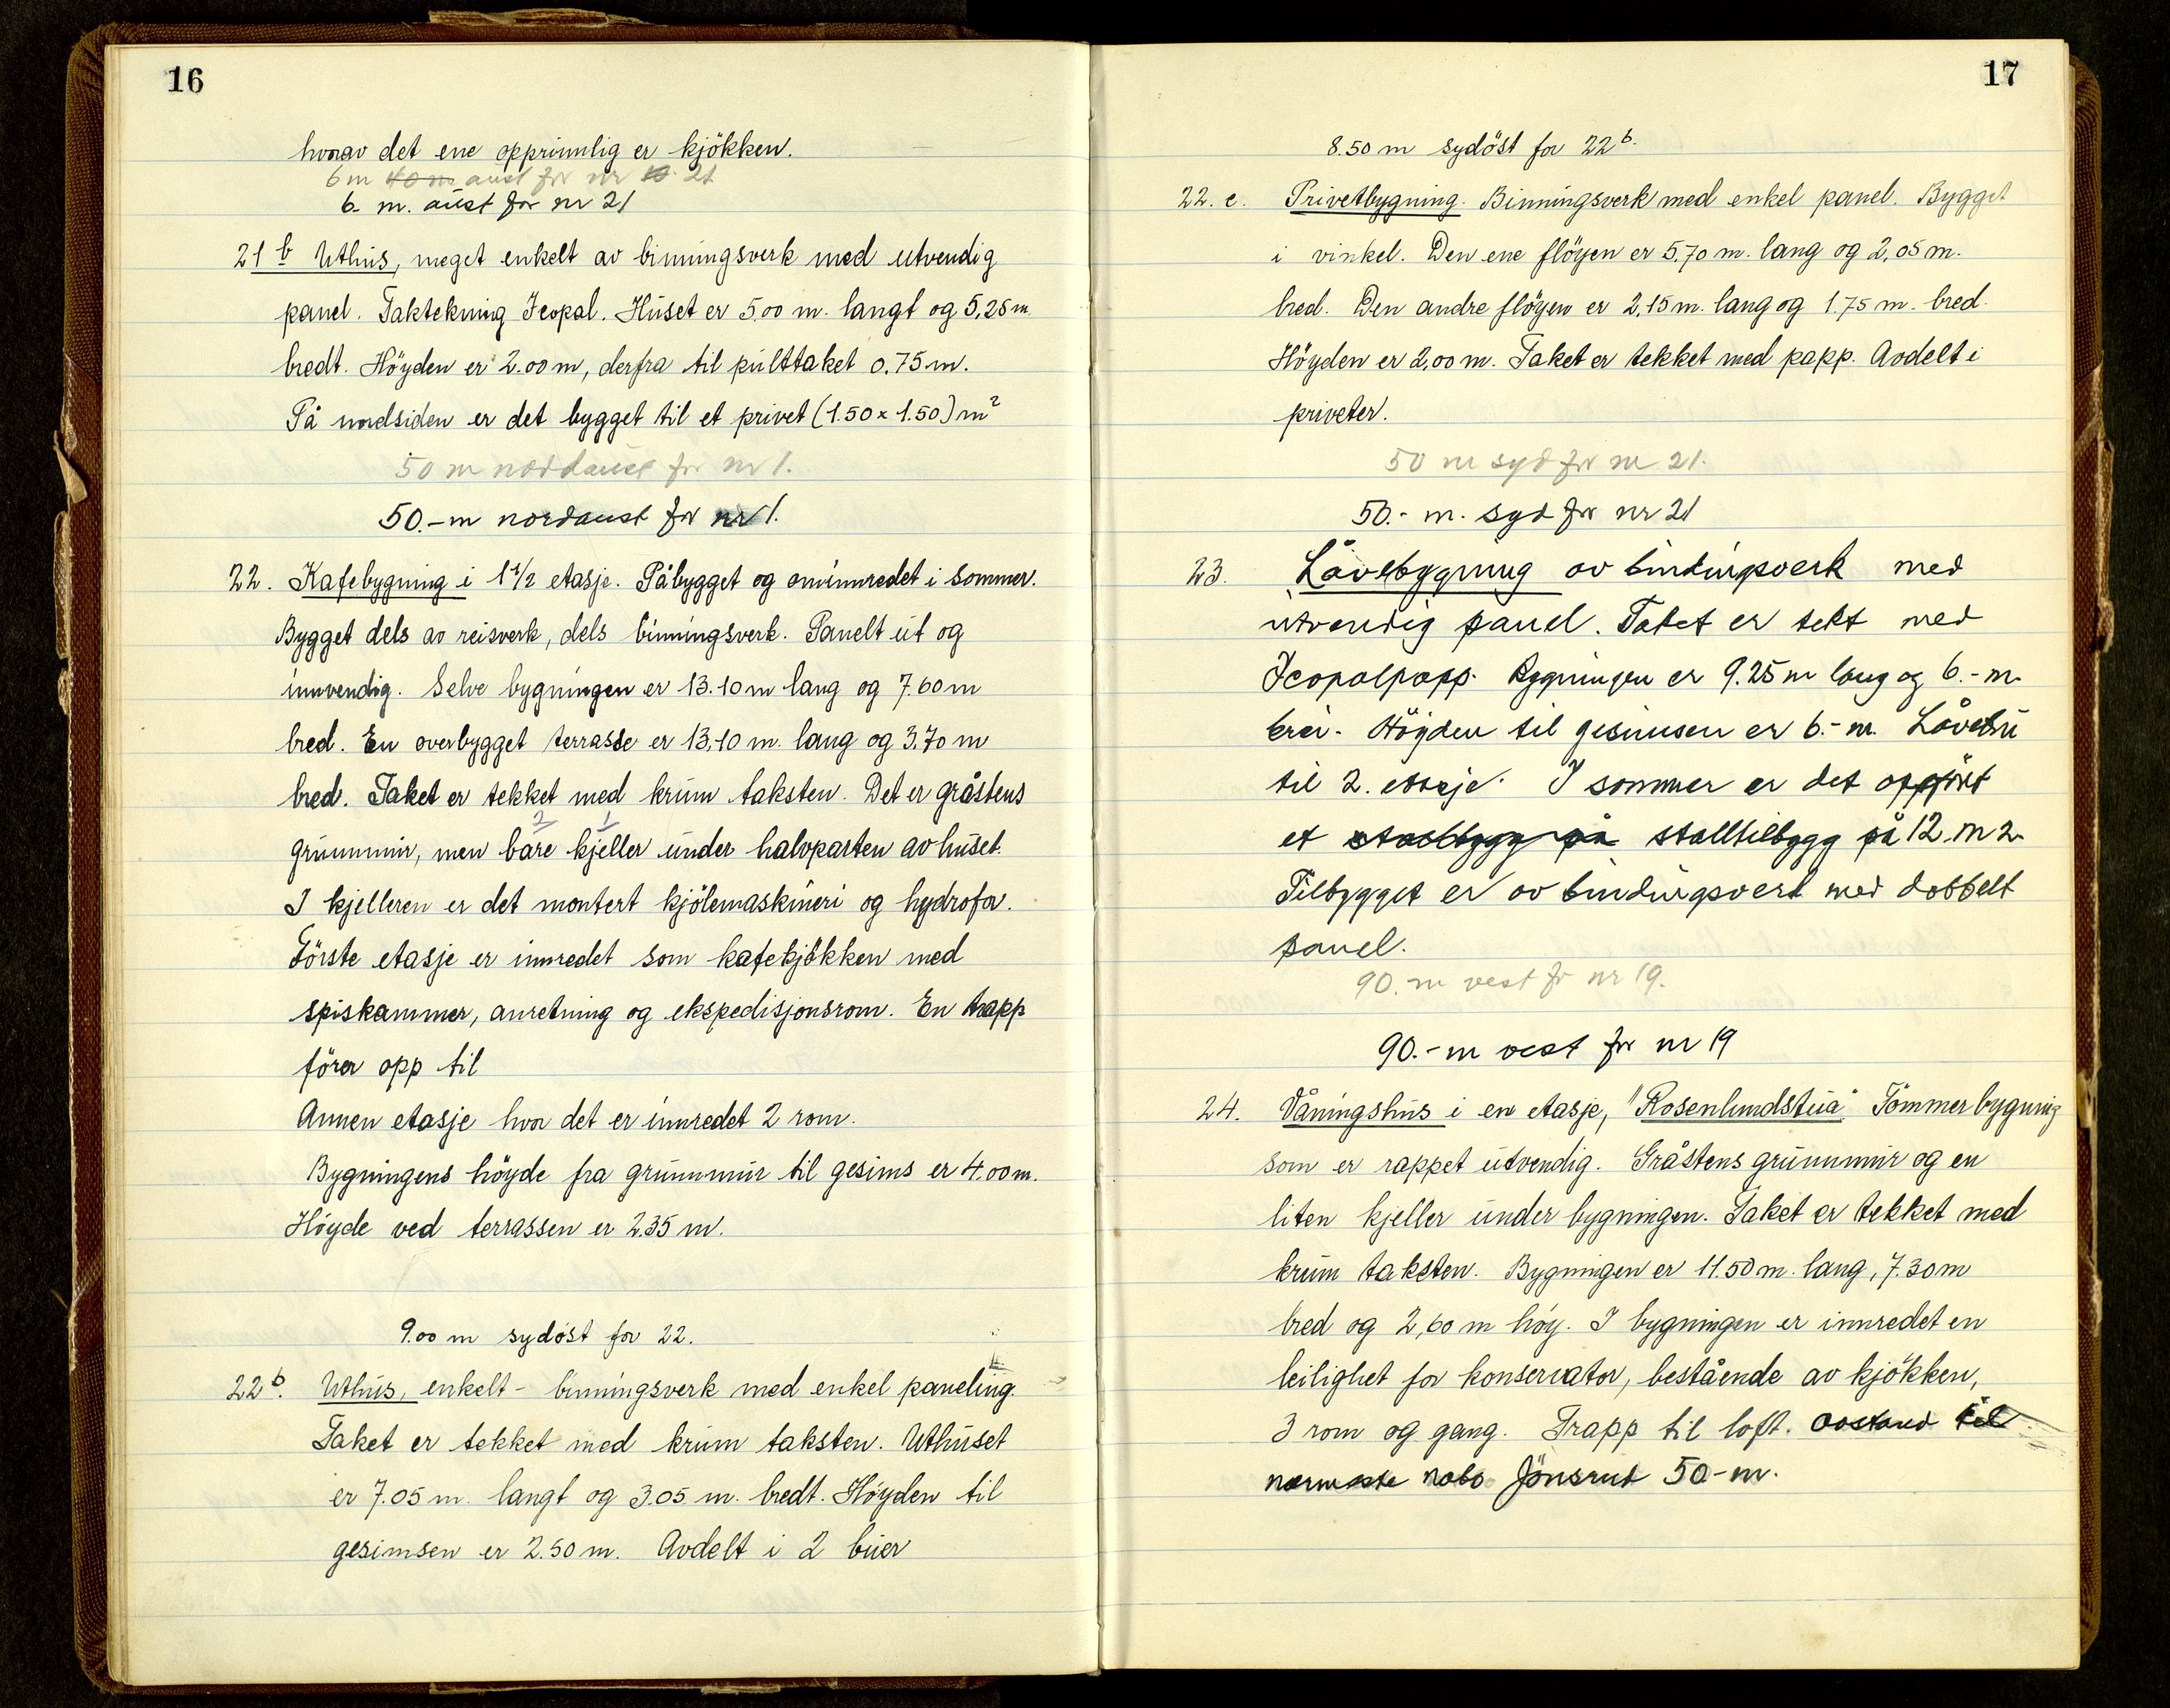 16
hvorav det ene opprinnlig er kjökken.
6 m 40 m aust for nr 21
6. m. aust for nr 21
21 b Uthus, meget enkelt av binningsverk med utvendig
panel. Taktekning Icopal. Huset er 5.00 m. langt og 5,25 m.
bredt. Höyden er 2.00 m, derfra til pulttaket 0.75 m.
På nordsiden er det bygget til et privet (1.50 x 1.50) m²
50 m nordaust for nr 1.
50.-m nordaust for nr 1.
22. Kafebygning i 1 1/2 etasje. Påbygget og ominnredet i sommer.
Bygget dels av reisverk, dels binningsverk. Panelt ut og
innvendig. Selve bygningen er 13.10 m lang og 7.60 m
bred. En overbygget terrasse er 13.10 m. lang og 3.70 m
bred. Taket er tekket med krum taksten. Det er gråstens
2 1
grunnmur, men bare kjeller under halvparten av huset.
I kjelleren er det montert kjölemaskineri og hydrofor.
Förste etasje er innredet som kafekjökken med
spiskammer, anretning og ekspedisjonsrom. En trapp
förer opp til
Annen etasje hvor det er innredet 2 rom.
Bygningens höyde fra grunnmur til gesims er 4.00 m.
Höyde ved terrassen er 2.35 m.
9.00 m sydöst for 22.
22 b. Uthus, enkelt - binningsverk med enkel paneling.
Taket er tekket med krum taksten. Uthuset
er 7.05 m. langt og 3.05 m. bredt. Höyden til
gesimsen er 2.50 m. Avdelt i 2 buer
17
8.50 m sydöst for 22 b.
22. c. Privetbygning. Binningsverk med enkel panel. Bygget
i vinkel. Den ene flöyen er 5,70 m. lang og 2,05 m.
bred. Den andre flöyen er 2,15 m. lang og 1.75 m. bred.
Höyden er 2,00 m. Taket er tekket med papp. Avdelt i
priveter.
50 m syd for nr 21.
50.- m. syd for nr 21
23. Låvebygning av bindingsverk med
utvendig panel. Taket er tekt med
Icopalpapp. Bygningen er 9.25 m lang og 6.-m.
brei. Höyden til gesimsen er 6.-m. Låvebru
til 2. etasje. I sommer er det oppfört
et stallbygg på stalltilbygg på 12 m2.
Tilbygget er av bindingsverk med dobbelt
panel.
90.m vest for nr 19.
90.-m vest for nr 19
24. Våningshus i en etasje, "Rosenlundstua" Tömmerbygning
som er rappet utvendig. Gråstens grunnmur og en
liten kjeller under bygningen. Taket er tekket med
krum taksten. Bygningen er 11.50 m. lang, 7.30 m
bred og 2,60 m höy. I bygningen er innredet en
leilighet for konservator, bestående av kjökken,
3 rom og gang. Trapp til loft. avstand til
nærmeste nabo Jönsrud 50-m.